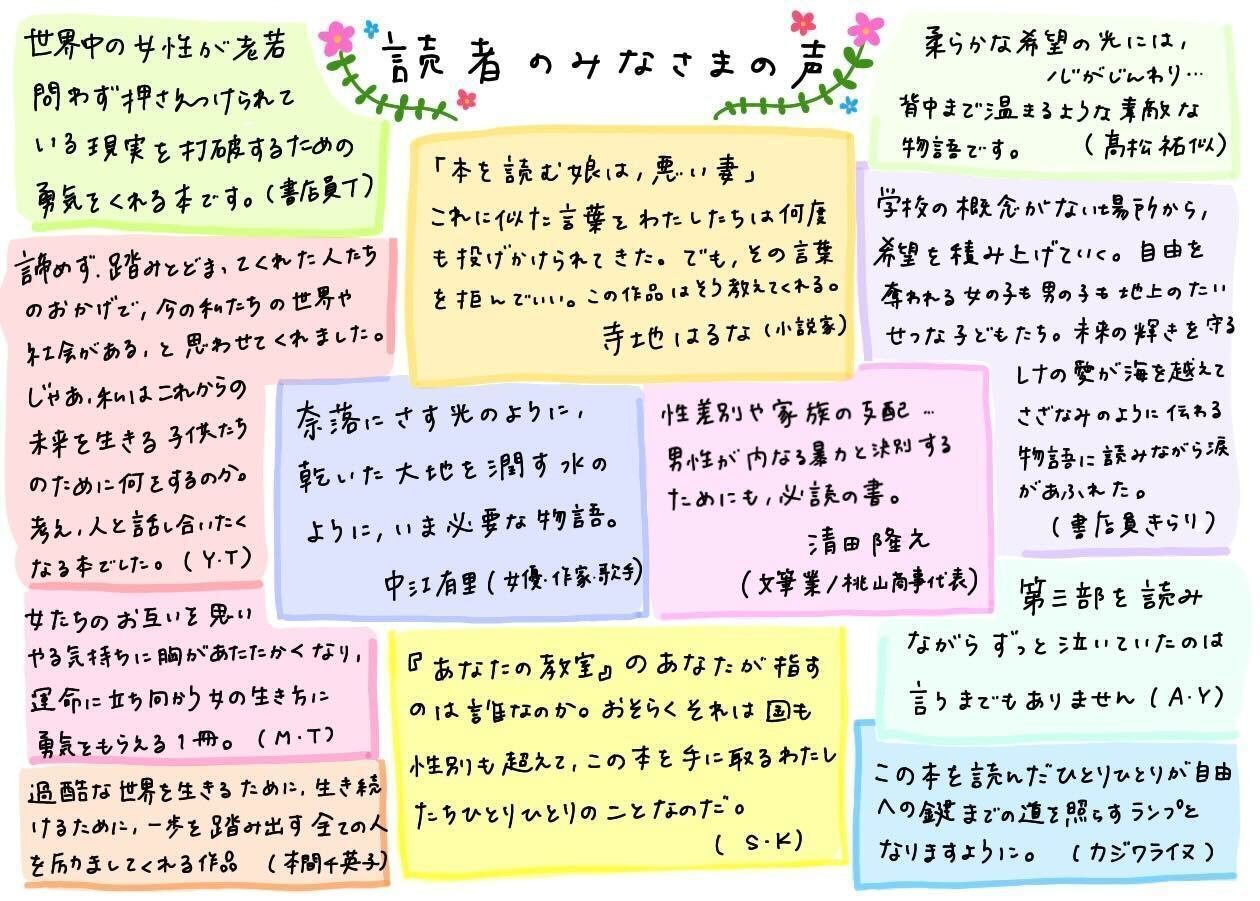 読者のみなさまの声
世界中の女性が老若
問わず押さえつけられて
いる現実を打破するための
勇気をくれる本です。(書店員T)
「本を読む娘は,悪い妻」
これに似た言葉をわたしたちは何度
も投げかけられてきた。でも,その言葉
を拒んでいい。この作品はそう教えてくれる。
寺地はるな(小説家)
柔らかな希望の光には,
心がじんわり…
背中まで温まるような素敵な
物語です。 (髙松祐似)
諦めず、踏みとどまってくれた人たち
のおかげで,今の私たちの世界や
社会がある,と思わせてくれました。
じゃあ,私はこれからの
未来を生きる子供たち
のために何をするのか。
考え,人と話し合いたく
なる本でした。(Y.T)
奈落にさす光のように,
乾いた大地を潤す水の
ように,いま必要な物語。
中江有里(女優・作家・歌手)
性差別や家族の支配…
男性が内なる暴力と決別する
ためにも,必読の書。
清田隆之
(文筆業/桃山商事代表)
学校の概念がない場所から,
希望を積み上げていく。自由を
奪われる女の子も男の子も地上のたい
せつな子どもたち。未来の輝きを守る
レナの愛が海を越えて
さざなみのように伝わる
物語に読みながら涙
があふれた。
(書店員きらり)
女たちのお互いを思い
やる気持ちに胸があたたかくなり,
運命に立ち向かう女の生き方に
勇気をもらえる1冊。(M.T)
過酷な世界を生きるために,生き続
けるために,一歩を踏み出す全ての人
を励ましてくれる作品 (本間千英子)
『あなたの教室』のあなたが指す
のは誰なのか。おそらくそれは国も
性別も超えて,この本を手に取るわたし
たちひとりひとりのことなのだ。
(S.K)
第三部を読み
ながらずっと泣いていたのは
言うまでもありません(A.Y)
この本を読んだひとりひとりが自由
への鍵までの道を照らすランプと
なりますように。 (カジワライヌ)